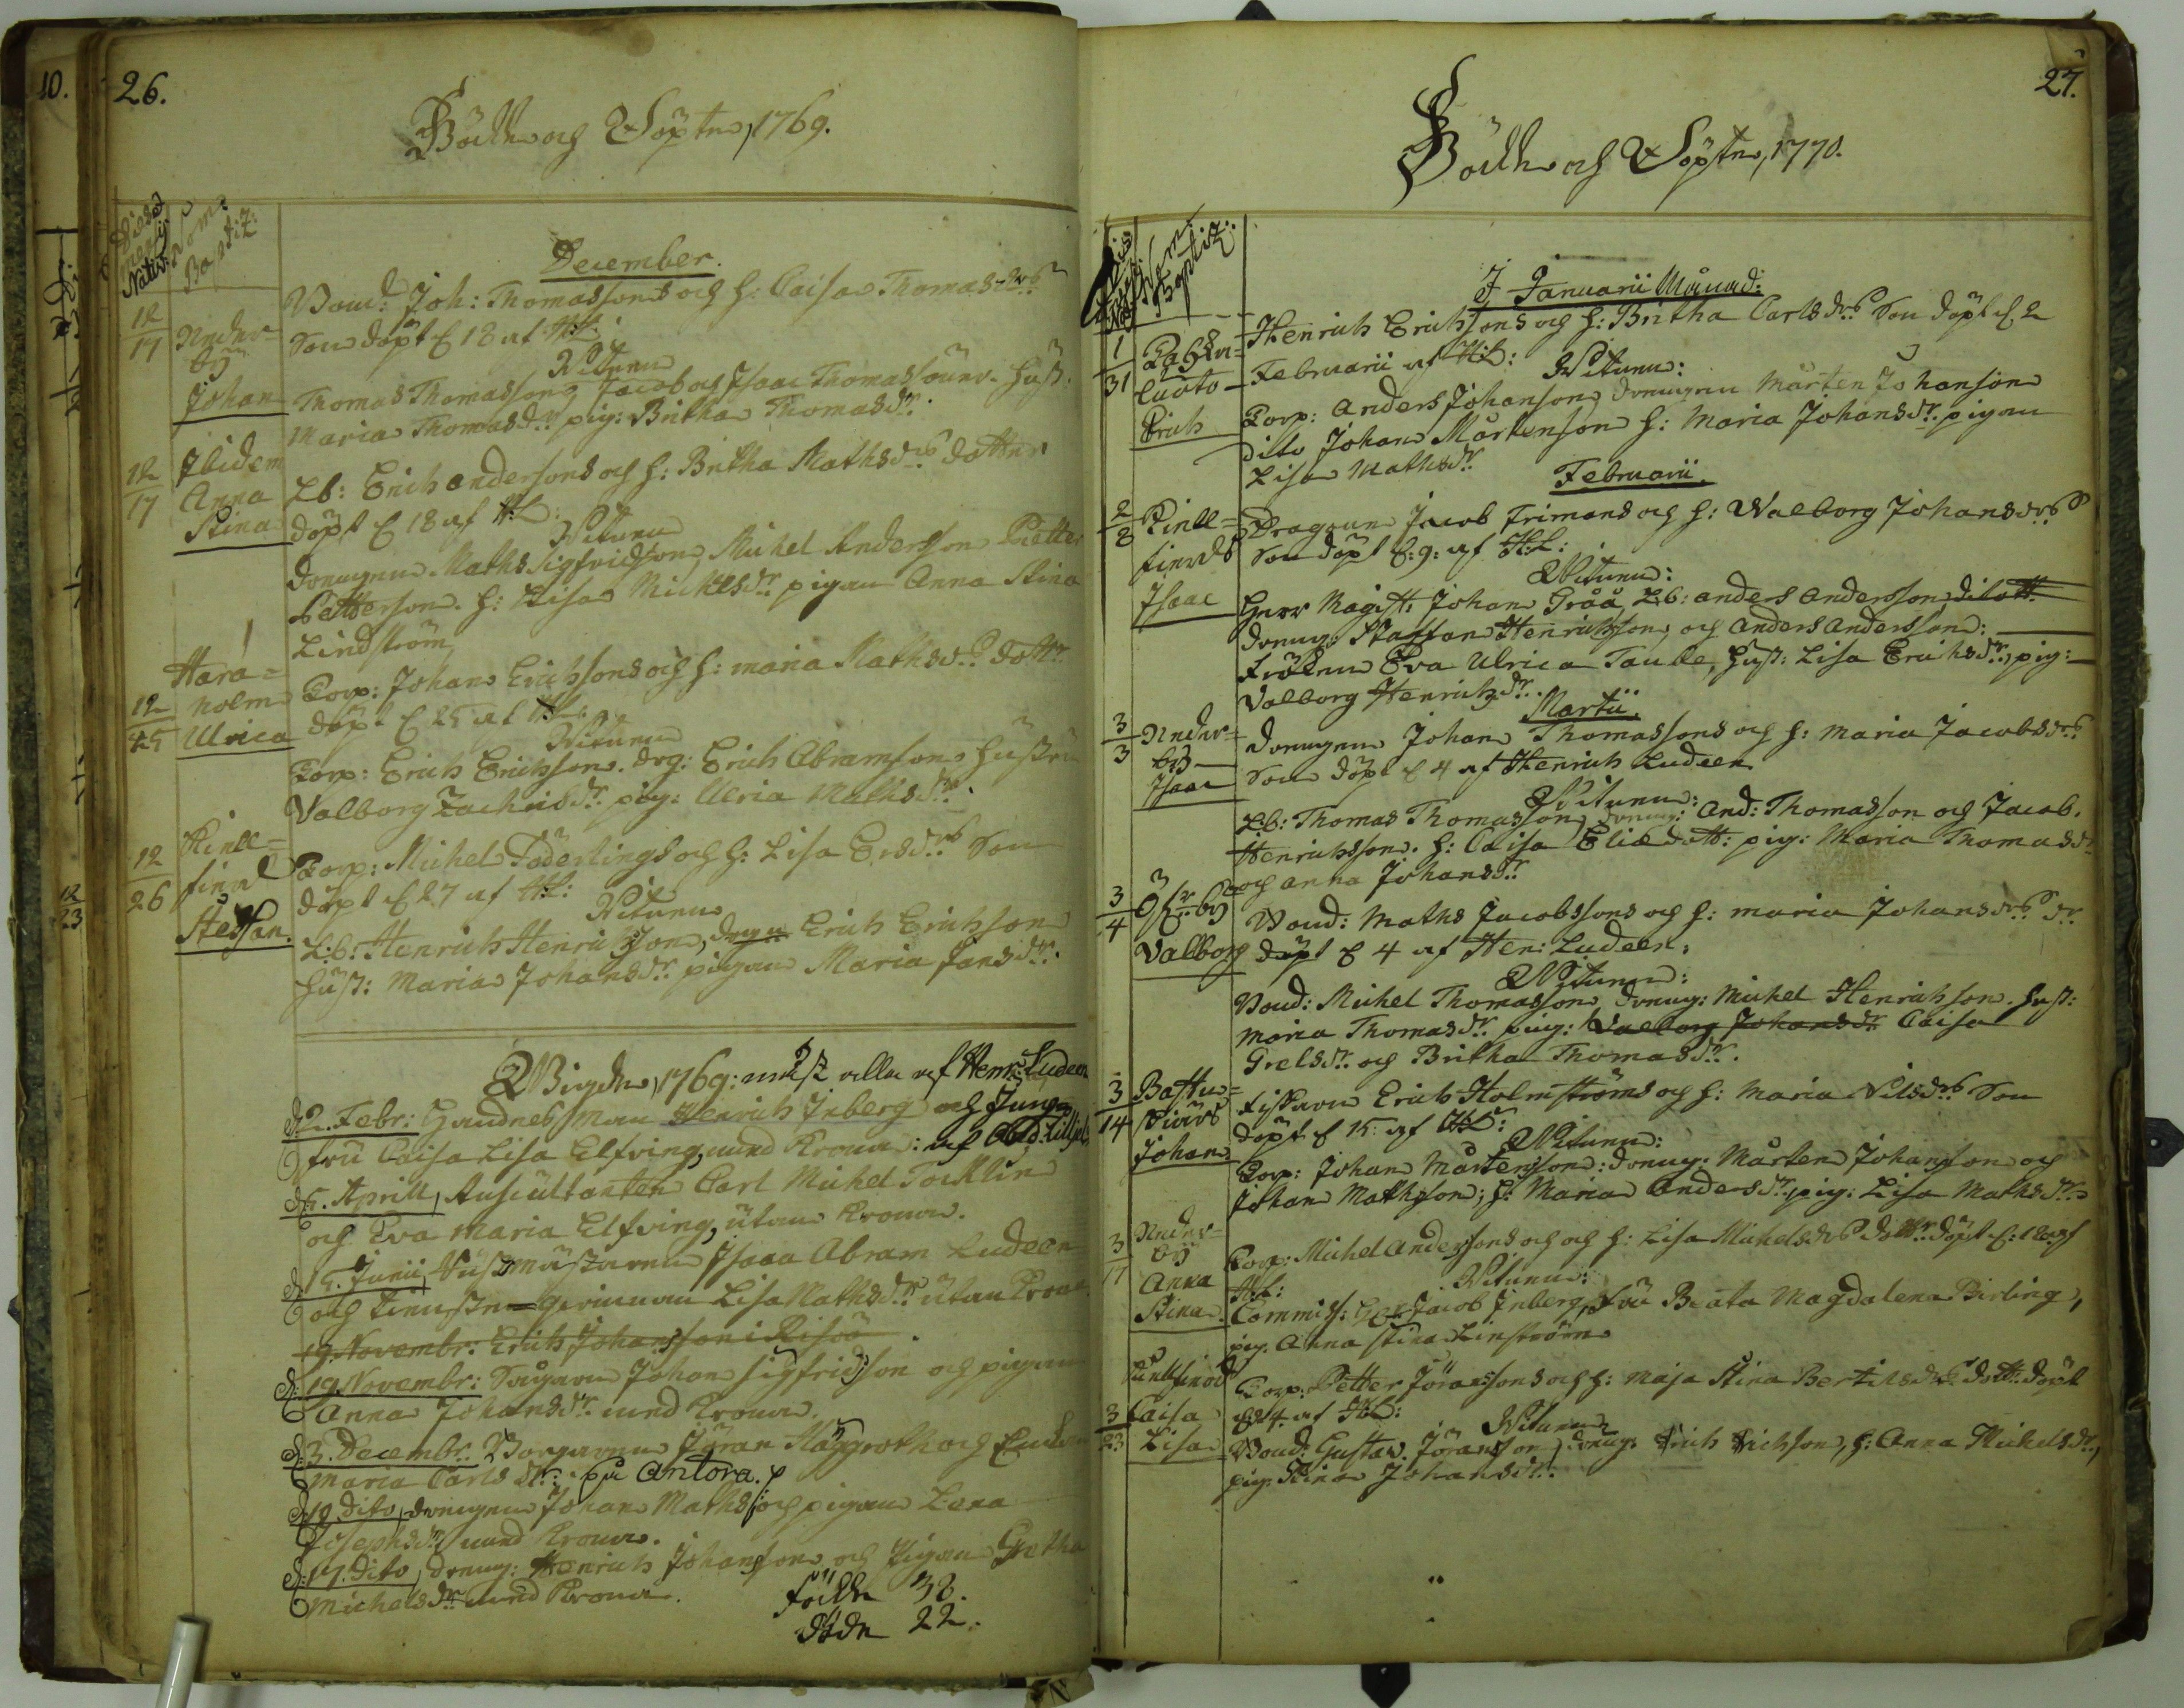 10.
26.
Födde och Döpte, 1769.
Dies et
mens:
Nativ:
Nom:
Baptiz:
December.
12
17
Neder=
by
Johan
Bond: Joh: Thomassons och H: Caisa Thomasdrs
Son döpt d 18 af HL:
Vitnen
Thomas Thomasson, Jacob och Isaac Thomassöner. Hust:
Maria Thomasdr. pig: Britha Thomasdr.
12
17
Ibidem
Anna
Stina
Lb: Erich Andersons och H: Britha Mathsdrs dotter
döpt d 18 af HL:
Vitnen
drengen Maths Sigfridson, Michel Andersson Petter
Petterson. H: Lisa Michelsdr. pigan Anna Stina
Lindström
12
25
Hara=
holm
Ulrica
Corp: Johan Erichssons och H: Maria Mathsdrs dottr.
döpt d 25 af HL:
Vitnen
Corp: Erich Erichsson. drg: Erich Abramson. Hustru
Valborg Zachrisdr. pig: Ulrica Mathsdr.
12
26
Kinck=
finnd
Steffan.
Corp: Michel Söderlings och H: Lisa Ersdrs Son
döpt d 27 af HL:
Vitnen
Lb: Henrich Henrichson, drgn Erich Erichson
Hust: Maria Johansdr. pigan Maria Jansdr.
12
23
Wigde, 1769: mäst alla af Henr: Ludeen
d. 2. Febr: Handelsman Henrich Inberg och Jung-
fru Caisa Lisa Elfving, med Krona: af
d 5. Aprill, Auscultanten Carl Michel Tocklin
och Eva Maria Elfving, utan Krona.
d 15. Junii, Rustmästaren Isaac Abram Ludeen
och tienste=qvinnan Lisa Mathsdr. utan Krona
19. Novembr: Erich Johansson i Risöö
d: 19. Novembr: Sågaren Johan Sigfridson och pigan
Anna Johansdr. med Krona.
d: 3. Decembr. Borgaren Jöran Häggroth och Enkan
Maria Carls dr: på Antora.
d: 12. dito, drengen Johan Maths: och pigan Lena
Josephsdr. med Krona.
d: 17. dito, dreng: Henrich Johanson och Pigan Gretha
Michelsdr. med Krona.
Födde 38.
Döde 22.
27.
Födde och Döpte, 1770.
Dies
Nom:
Baptiz:
I Januarii Månad:
1
31
luoto
Erich
Henrich Erichsons och H: Britha Carlsdrs Son döpt d. 2
Februarii af HL: Vitnen:
Corp: Anders Johanson, drengen Mårten Johanson
dito Johan Mårtenson H: Maria Johansdr. pigan
Lisa Mathsdr
Februarii.
2
8
Kinck=
finnds
Isaac
Dragoun Jacob Frimans och H: Walborg Johansdrs
Son döpt d: 9: af HL:
Vitnen:
Herr Magist: Johan Gråå, Lb: Anders Andersson,
dreng: Staffan Henrichson, och Anders Andersson:
Fröken Eva Ulrica Taube, Hust: Lisa Erichsdr., pig:
Valborg Henrichsdr.
Martii.
3
3
Neder=
by
Isaac
drengen Johan Thomassons och H: Maria Jacobsdrs
Son döpt d 4 af Henrich Ludeen
Vitnen:
Lb: Thomas Thomasson, dreng: And: Thomasson och Jacob.
Henrichsson. H: Caisa Eliædott: pig: Maria Thomasdr
och Anna Johansdr.
3
4
Öfverby
Valborg
Bond: Maths Jacobssons och H: Maria Johansdrs dr.
döpt d 4 af Hen: Ludeen.
Vitnen:
Bond: Michel Thomasson, dreng: Michel Henrichson. Hust:
Maria Thomasdr. pig: Valborg Johansdr. Caisa
Grelsdr. och Britha Thomasdr.
3
14
Bastu=
Johan
Fiskaren Erich Holmströms och H: Maria Nilsdrs Son
döpt d 15 af HL:
Vitnen:
Corp: Johan Mårtenson: dreng: Mårten Johanson och
Johan Mathsson; H: Maria Andersdr. pig: Lisa Mathsdr.
3
17
Neder=
by
Anna
Stina.
Corp: Michel Andersons och och H: Lisa Michelsdrs dottr. döpt d: 18 af
HL:
Vitnen:
Commiss: Herr Jacob Inberg, Fru Beata Magdalena Birling,
pig. Anna Stina Linström
3
23
Caisa
Lisa
Corp: Petter Jöranssons och H: Maja Stina Bertilsdrs dott: döpt
d 24. af HL:
Vitnen
Bond: Gustav. Jöransson, dreng: Erich Erichson, H: Anna Michelsdr.,
pig. Stina Johansdr.